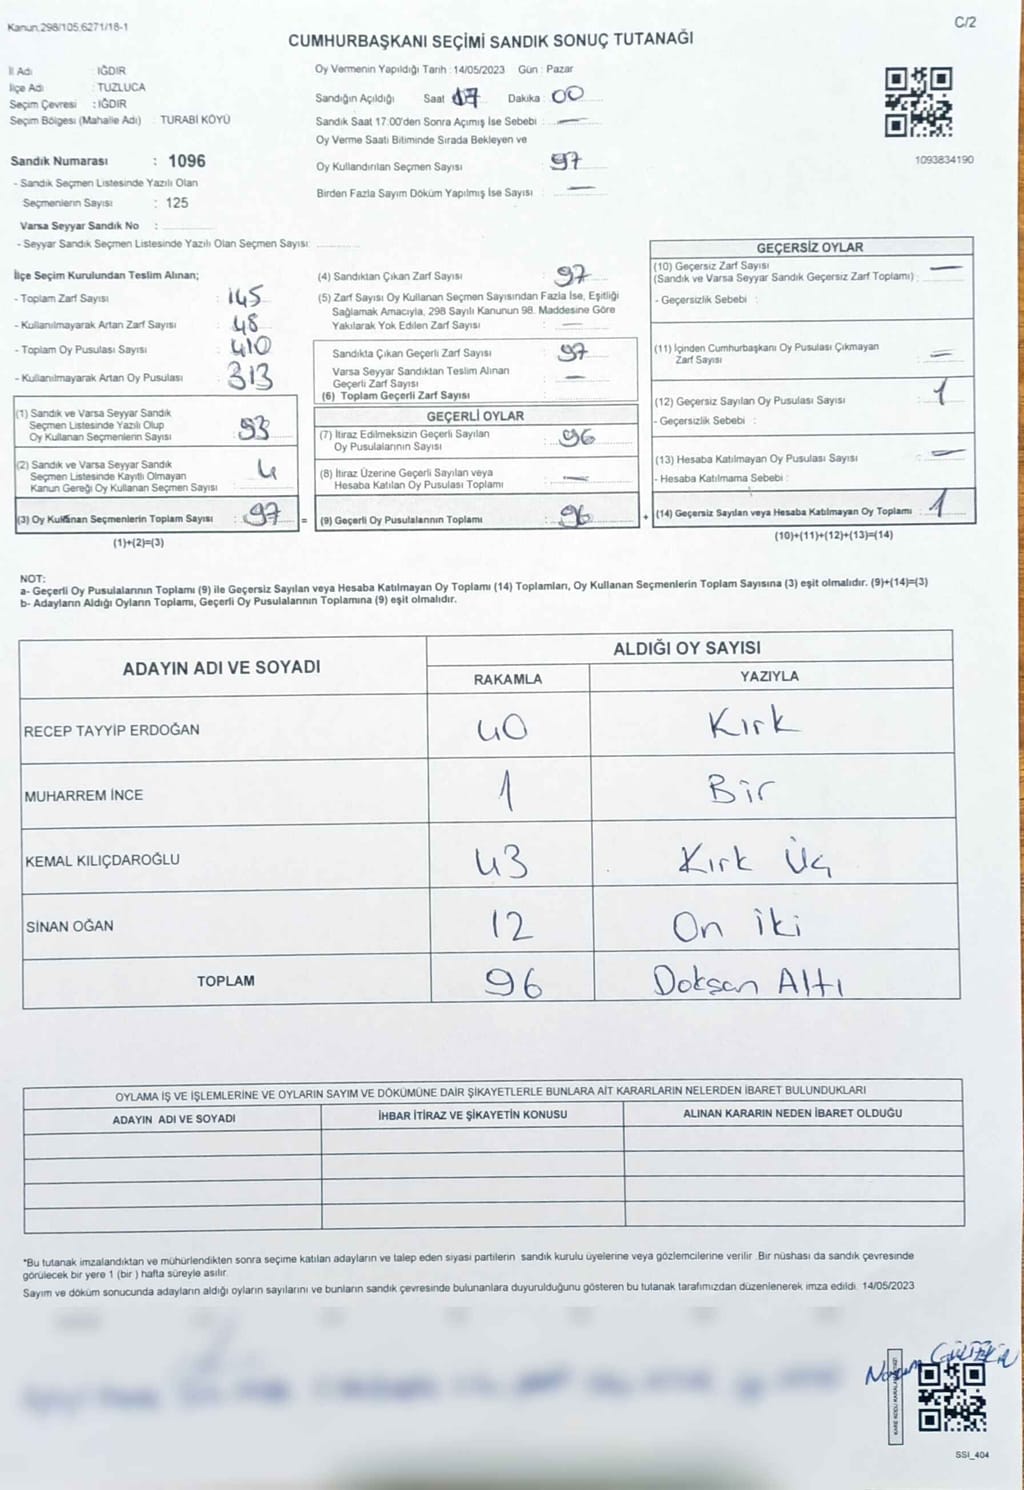 Kanun,298/105,6271/18-1
C/2
CUMHURBAŞKANI SEÇİMİ SANDIK SONUÇ TUTANAĞI
İl Adı : IĞDIR
İlçe Adı : TUZLUCA
Seçim Çevresi : IĞDIR
Seçim Bölgesi (Mahalle Adı) : TURABİ KÖYÜ
Sandık Numarası : 1096
- Sandık Seçmen Listesinde Yazılı Olan
Seçmenlerin Sayısı : 125
Varsa Seyyar Sandık No :
- Seyyar Sandık Seçmen Listesinde Yazılı Olan Seçmen Sayısı:
Oy Vermenin Yapıldığı Tarih : 14/05/2023 Gün : Pazar
Sandığın Açıldığı Saat 17 Dakika : 00
Sandık Saat 17:00'den Sonra Açımış İse Sebebi : —
Oy Verme Saati Bitiminde Sırada Bekleyen ve
Oy Kullandırılan Seçmen Sayısı : 97
Birden Fazla Sayım Döküm Yapılmış İse Sayısı : —
1093834190
İlçe Seçim Kurulundan Teslim Alınan;
- Toplam Zarf Sayısı : 145
- Kullanılmayarak Artan Zarf Sayısı : 48
- Toplam Oy Pusulası Sayısı : 410
- Kullanılmayarak Artan Oy Pusulası : 313
(1) Sandık ve Varsa Seyyar Sandık
Seçmen Listesinde Yazılı Olup
Oy Kullanan Seçmenlerin Sayısı : 93
(2) Sandık ve Varsa Seyyar Sandık
Seçmen Listesinde Kayıtlı Olmayan
Kanun Gereği Oy Kullanan Seçmen Sayısı : 4
(3) Oy Kullanan Seçmenlerin Toplam Sayısı : 97 =
(1)+(2)=(3)
(4) Sandıktan Çıkan Zarf Sayısı : 97
(5) Zarf Sayısı Oy Kullanan Seçmen Sayısından Fazla İse, Eşitliği
Sağlamak Amacıyla, 298 Sayılı Kanunun 98. Maddesine Göre
Yakılarak Yok Edilen Zarf Sayısı : —
Sandıkta Çıkan Geçerli Zarf Sayısı : 97
Varsa Seyyar Sandıktan Teslim Alınan
Geçerli Zarf Sayısı : —
(6) Toplam Geçerli Zarf Sayısı :
GEÇERLİ OYLAR
(7) İtiraz Edilmeksizin Geçerli Sayılan
Oy Pusulalarının Sayısı : 96
(8) İtiraz Üzerine Geçerli Sayılan veya
Hesaba Katılan Oy Pusulası Toplamı : —
(9) Geçerli Oy Pusulalarının Toplamı : 96 +
GEÇERSİZ OYLAR
(10) Geçersiz Zarf Sayısı —
(Sandık ve Varsa Seyyar Sandık Geçersiz Zarf Toplamı) :
- Geçersizlik Sebebi :
(11) İçinden Cumhurbaşkanı Oy Pusulası Çıkmayan
Zarf Sayısı : —
(12) Geçersiz Sayılan Oy Pusulası Sayısı : 1
- Geçersizlik Sebebi :
(13) Hesaba Katılmayan Oy Pusulası Sayısı : —
- Hesaba Katılmama Sebebi :
(14) Geçersiz Sayılan veya Hesaba Katılmayan Oy Toplamı : 1
(10)+(11)+(12)+(13)=(14)
NOT:
a- Geçerli Oy Pusulalarının Toplamı (9) ile Geçersiz Sayılan veya Hesaba Katılmayan Oy Toplamı (14) Toplamları, Oy Kullanan Seçmenlerin Toplam Sayısına (3) eşit olmalıdır. (9)+(14)=(3)
b- Adayların Aldığı Oyların Toplamı, Geçerli Oy Pusulalarının Toplamına (9) eşit olmalıdır.
ADAYIN ADI VE SOYADI
ALDIĞI OY SAYISI
RAKAMLA YAZIYLA
RECEP TAYYİP ERDOĞAN 40 Kırk
MUHARREM İNCE 1 Bir
KEMAL KILIÇDAROĞLU 43 Kırk Üç
SİNAN OĞAN 12 On iki
TOPLAM 96 Doksan Altı
OYLAMA İŞ VE İŞLEMLERİNE VE OYLARIN SAYIM VE DÖKÜMÜNE DAİR ŞİKAYETLERLE BUNLARA AİT KARARLARIN NELERDEN İBARET BULUNDUKLARI
ADAYIN ADI VE SOYADI İHBAR İTİRAZ VE ŞİKAYETİN KONUSU ALINAN KARARIN NEDEN İBARET OLDUĞU
*Bu tutanak imzalandıktan ve mühürlendikten sonra seçime katılan adayların ve talep eden siyasi partilerin sandık kurulu üyelerine veya gözlemcilerine verilir. Bir nüshası da sandık çevresinde
görülecek bir yere 1 (bir ) hafta süreyle asılır.
Sayım ve döküm sonucunda adayların aldığı oyların sayılarını ve bunların sandık çevresinde bulunanlara duyurulduğunu gösteren bu tutanak tarafımızdan düzenlenerek imza edildi. 14/05/2023
SSI_404